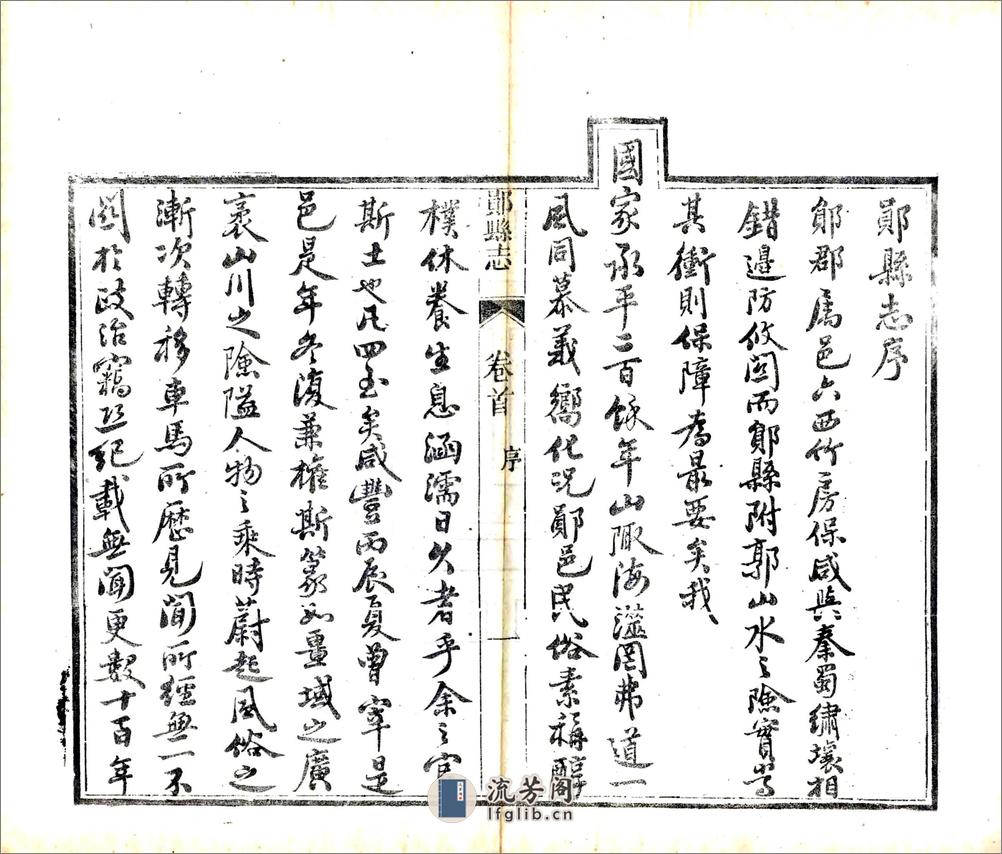 鄖縣志序
鄖郡屬邑六西竹房保咸與秦蜀繡壤相
錯邊防攸關而鄖縣附郭山水之險實當
其衝則保障為最要矣我
國家承平二百餘年山陬海澨罔弗道一
風同慕義嚮化況鄖邑民俗素稱醇
鄖縣志
卷首
序
一
樸休養生息涵濡日久者乎余之官
斯土也凡四至矣咸豐丙辰夏曾宰是
邑是年冬復兼權斯篆如畺域之廣
袤山川之險隘人物之乘時蔚起風俗之
漸次轉移車馬所歷見聞所經無一不
關於政治竊恐紀載無聞更數十百年
流芳阁
lfglib.cn